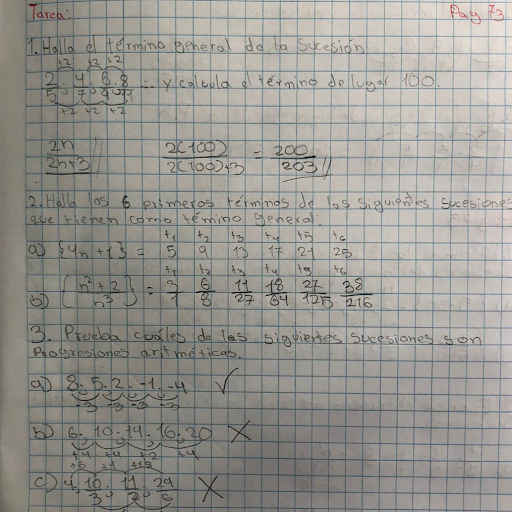 Tarea: Pag 73
1. Halla el término general de la sucesión
+2 +2 +2
2/5, 4/7, 6/9, 8/11 = y calcula el término de lugar 100.
+2 +2 +2
2n/2n+3 // 2(100)/2(100)+3 = 200/203 //
2. Halla los 6 primeros términos de las siguientes sucesiones
que tienen como término general.
t1 t2 t3 t4 t5 t6
a) {4n+1} = 5 9 13 17 21 25
t1 t2 t3 t4 t5 t6
b) {n²+2/n³} = 3/1 6/8 11/27 18/64 27/125 38/216
3. Prueba cuáles de las siguientes sucesiones son
Progresiones aritméticas.
a) 8, 5, 2, -1, -4 ✓
-3 -3 -3 -3
b) 6, 10, 14, 16, 20 X
+4 +4 +2 +4
c) 4, 10/3, 11/2, 29/6 X